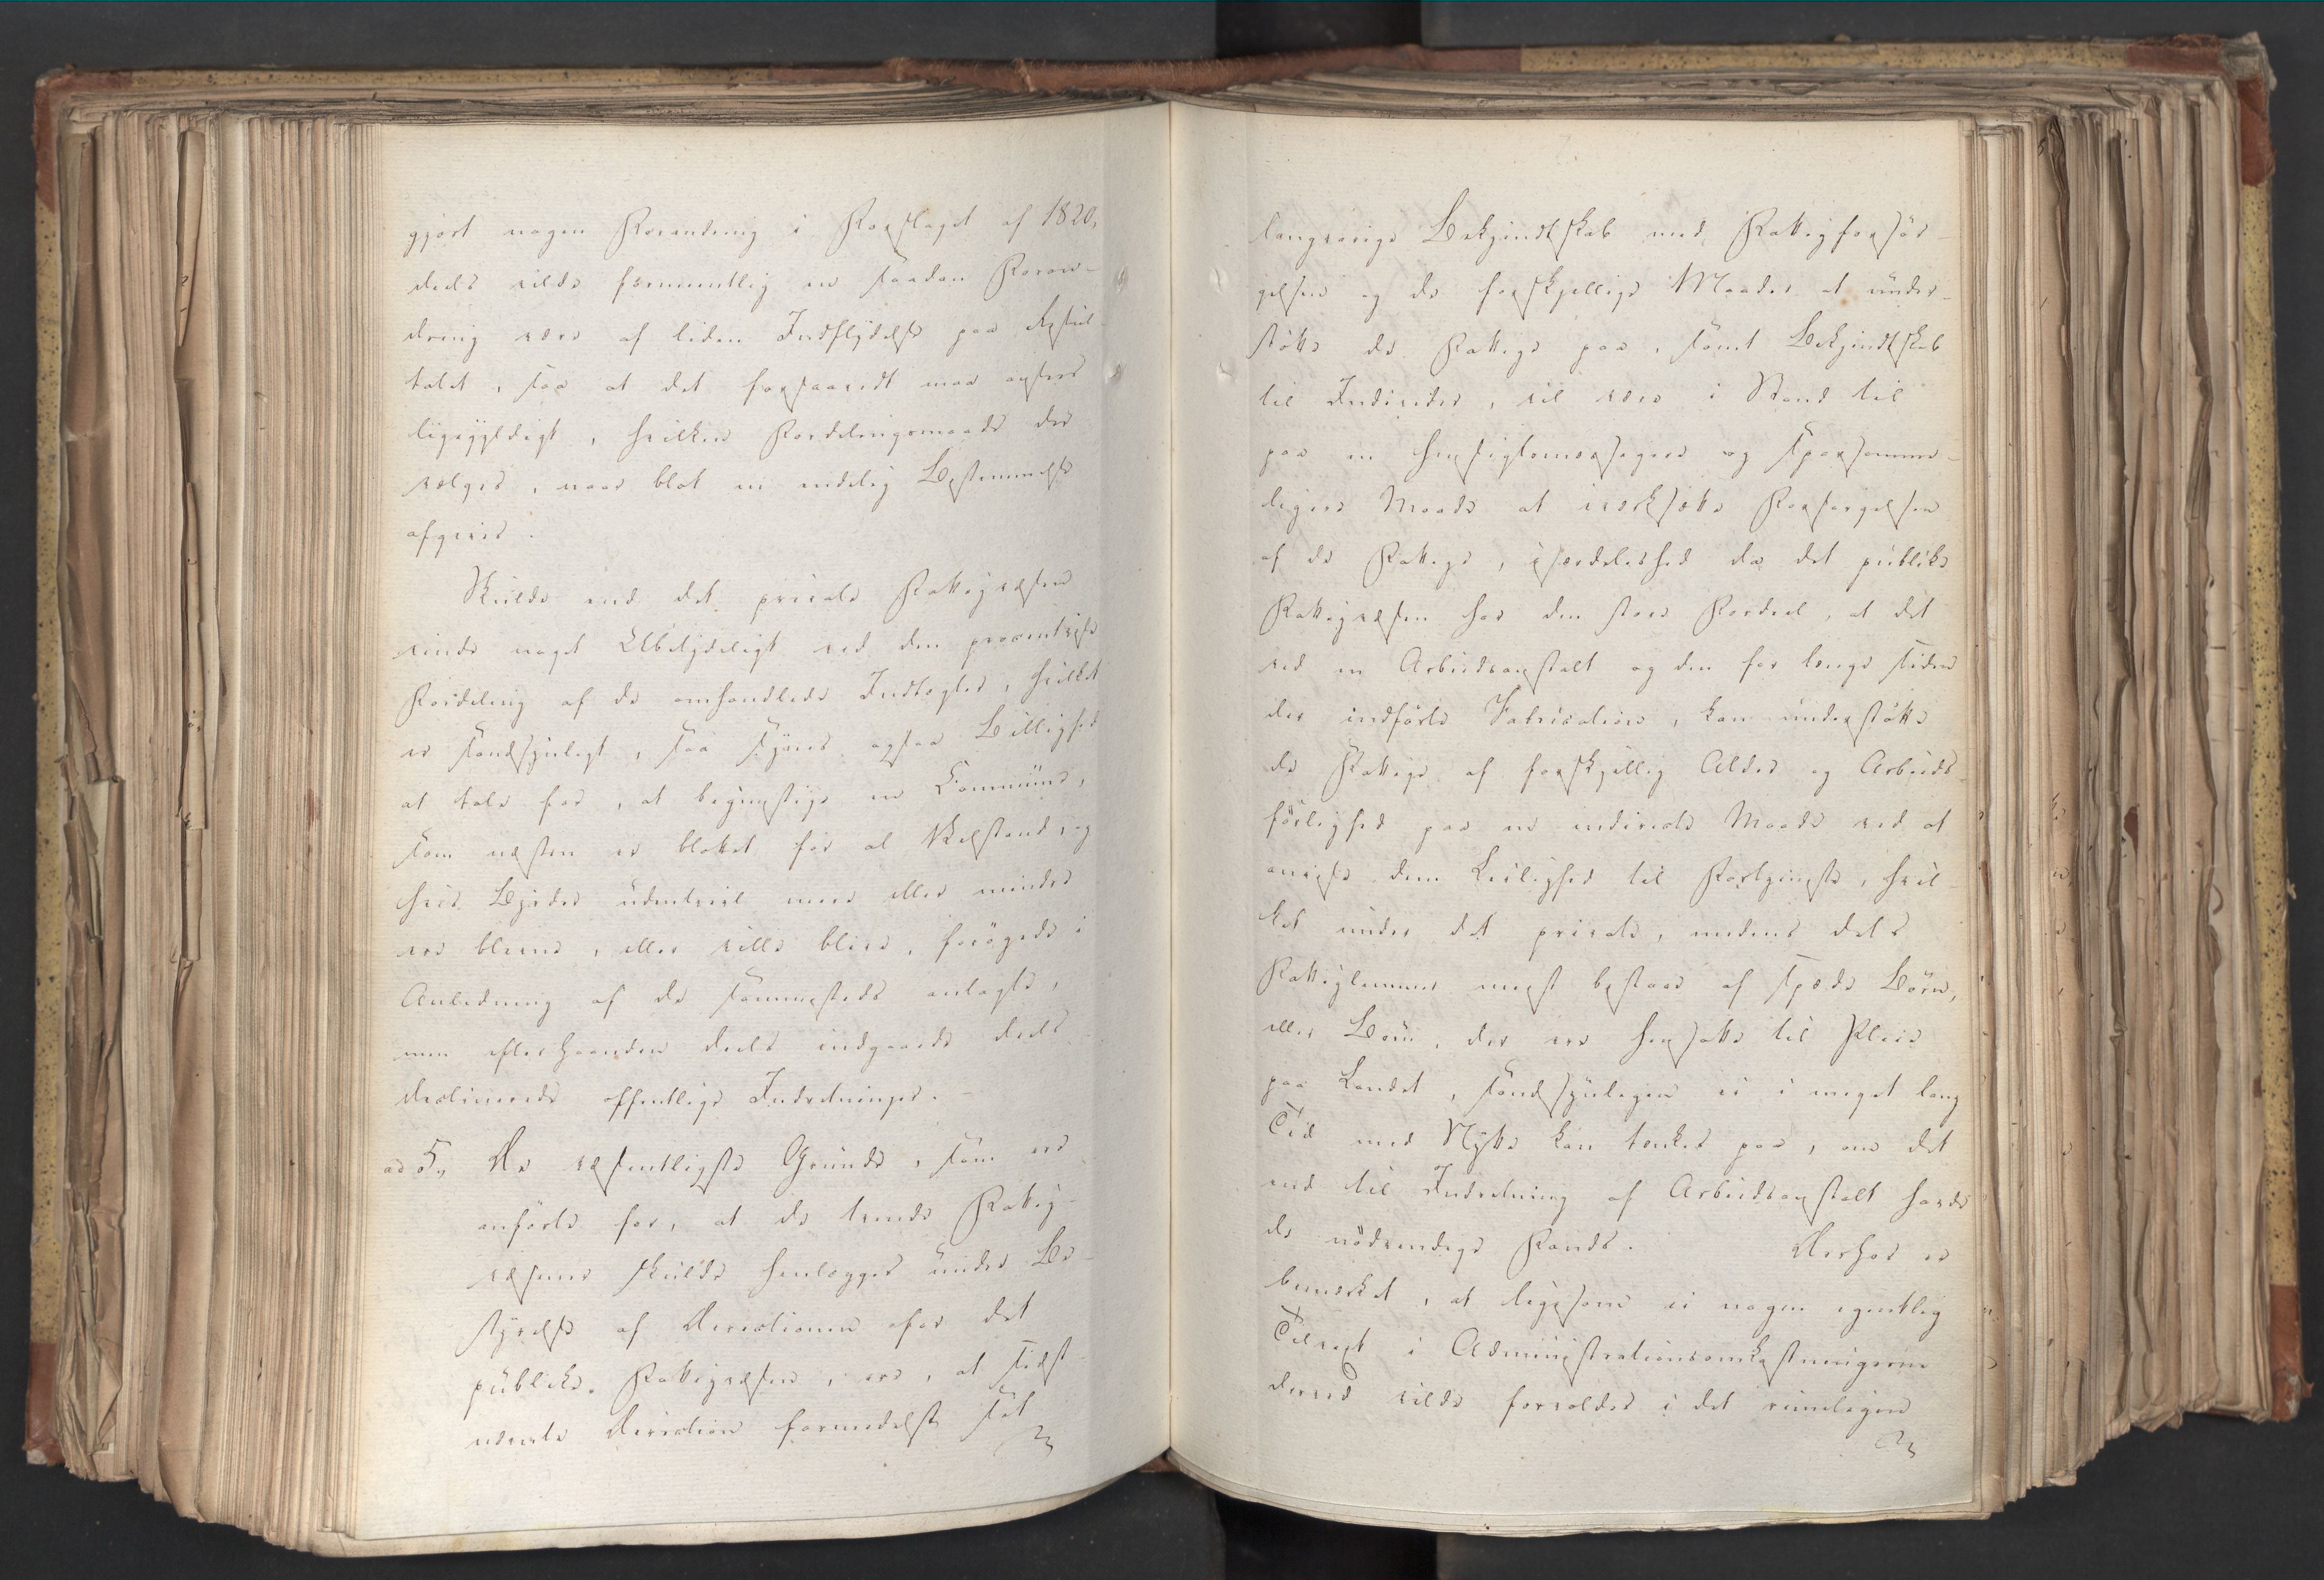 gjort nogen Forandring i Forslaget af 1820,
deels vilde formeentlig en saadan Foran-
dring være af liden Indflydelse paa Resul-
tatet, saa at det forsaavidt maa ansees
ligegyldigt, hvilken Fordelingsmaade der
vælges, naar blot en endelig Bestemmelse
afgives.
Skulde end det private Fattigvæsen
vinde noget Ubetydeligt ved den procentvise
Fordeling af de omhandlede Indtægter, hvilket
er sandsynligt, saa synes ogsaa Billighed
at tale for, at begunstige en Commune,
som næsten er blottet for al Velstand, og
hvis Byrder udentvivl meer eller mindre
ere blevne, eller ville blive, forøgede i
Anledning af de sammesteds anlagte,
men efterhaanden deels indgaaede deels
declinerede offentlige Indretninger. -
ad 5., De væsentligste Grunde, som ere
anførte for, at de tvende Fattig-
væsener skulde henlægges under Be-
styrelse af Directionen for det
publike Fattigvæsen, ere, at sidst-
nævnte Direction formedelst sit
langvarige Bekjendtskab med Fattigforsør-
gelsen og de forskjellige Maader at under-
støtte de Fattige paa, samt Bekjendtskab
til Individer, vil være i Stand til
paa en hensigtsmæssigere og sparsomme-
ligere Maade at iværksætte Forsørgelsen
af de Fattige, især​deleshed da det publike
Fattigvæsen har den store Fordeel, at det
ved en Arbeidsanstalt og den for længe siden
der indførte Fabrication, kan understøtte
de Fattige af forskjellig Alder og Arbeids-
førlighed paa en indirecte Maade ved at
anvise dem Leilighed til Fortjeneste, hvil-
ket under det private, medens dets
Fattiglemmer meest bestaae af spæde Børn,
eller Børn, der ere hensatte til Pleie
paa Landet, sandsynligen ei i meget lang
Tid med Nytte kan tænkes paa, om det
end til Indretning af Arbeidsanstalt havde
de nødvendige Fonds. Derhos er
bemærket, at ligesom ei nogen egentlig
Tilvæxt i Administrationsomkostningerne
derved vilde forvoldes i det rimeligen